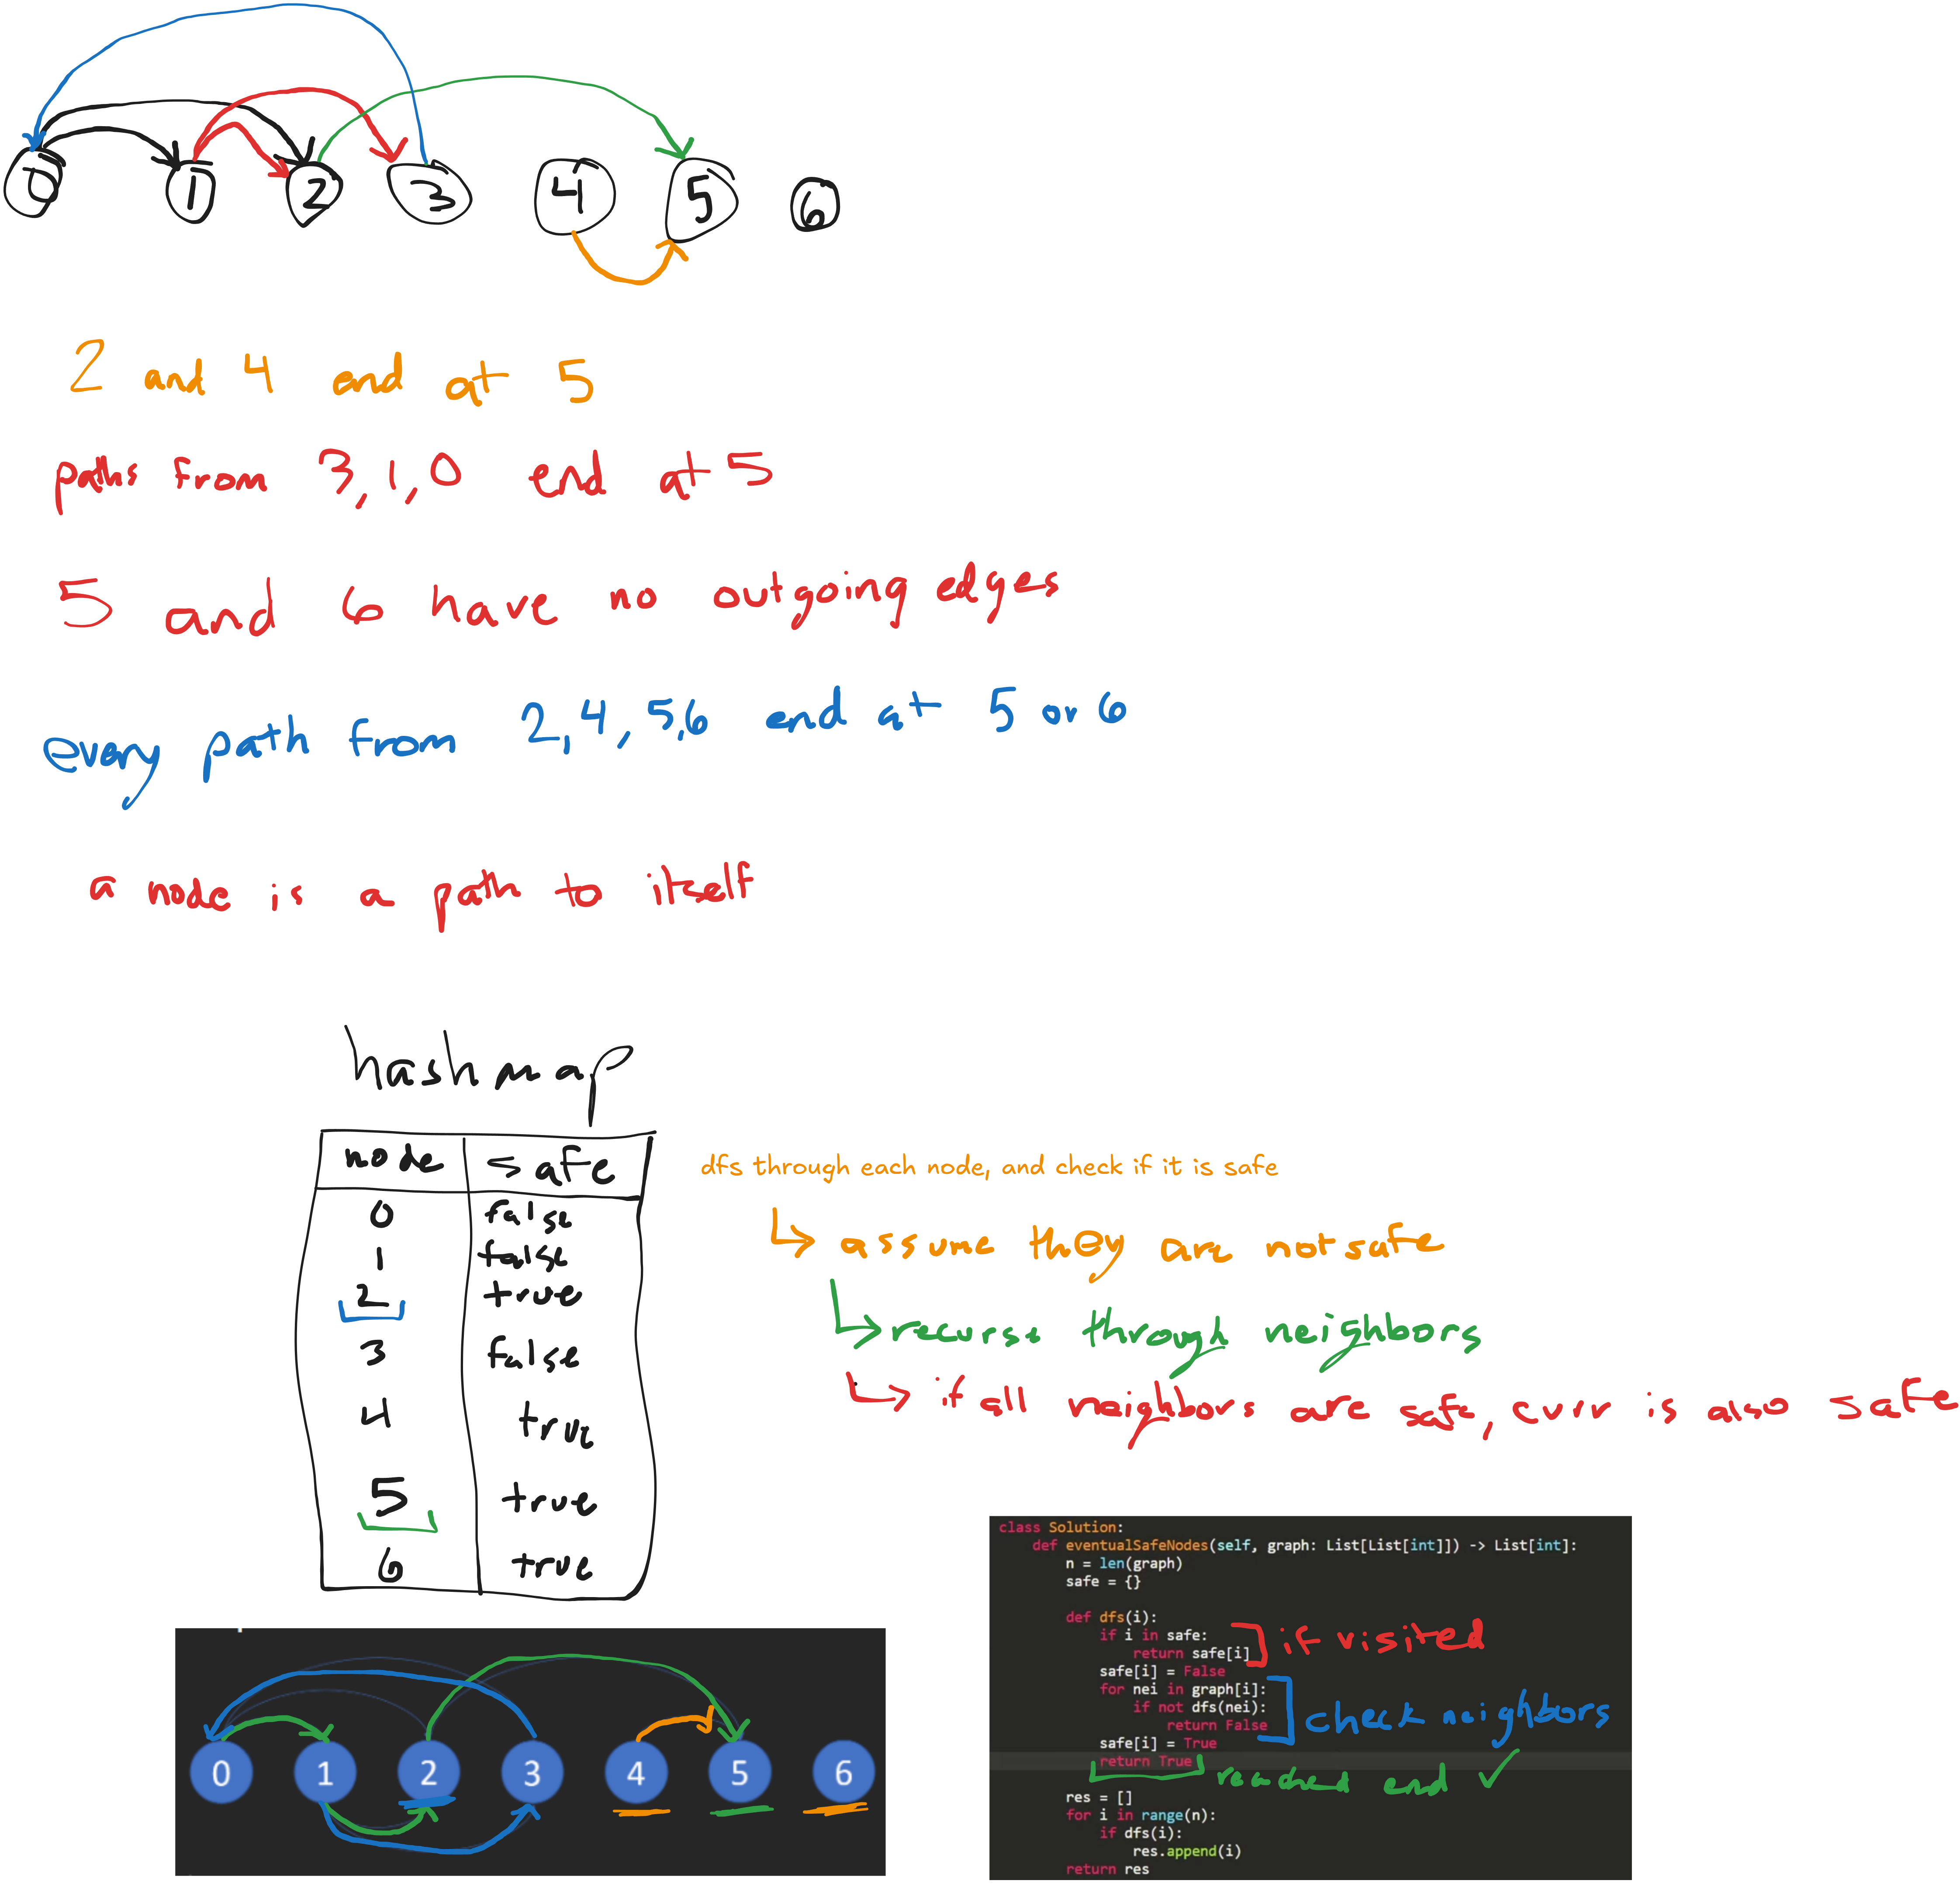 0 1 2 3 4 5 6
2 and 4 end at 5
paths from 3,1,0 end at 5
5 and 6 have no outgoing edges
every path from 2,4,5,6 end at 5 or 6
a node is a path to itself
hashmap
node safe
0 false
1 false
2 true
3 false
4 true
5 true
6 true
dfs through each node, and check if it is safe
assume they are not safe
recurse through neighbors
if all neighbors are safe, curr is also safe
0 1 2 3 4 5 6
class Solution:
def eventualSafeNodes(self, graph: List[List[int]]) -> List[int]:
n = len(graph)
safe = {}
def dfs(i):
if i in safe:
return safe[i]
if visited
safe[i] = False
for nei in graph[i]:
if not dfs(nei):
return False
check neighbors
safe[i] = True
return True
reached end ✓
res = []
for i in range(n):
if dfs(i):
res.append(i)
return res